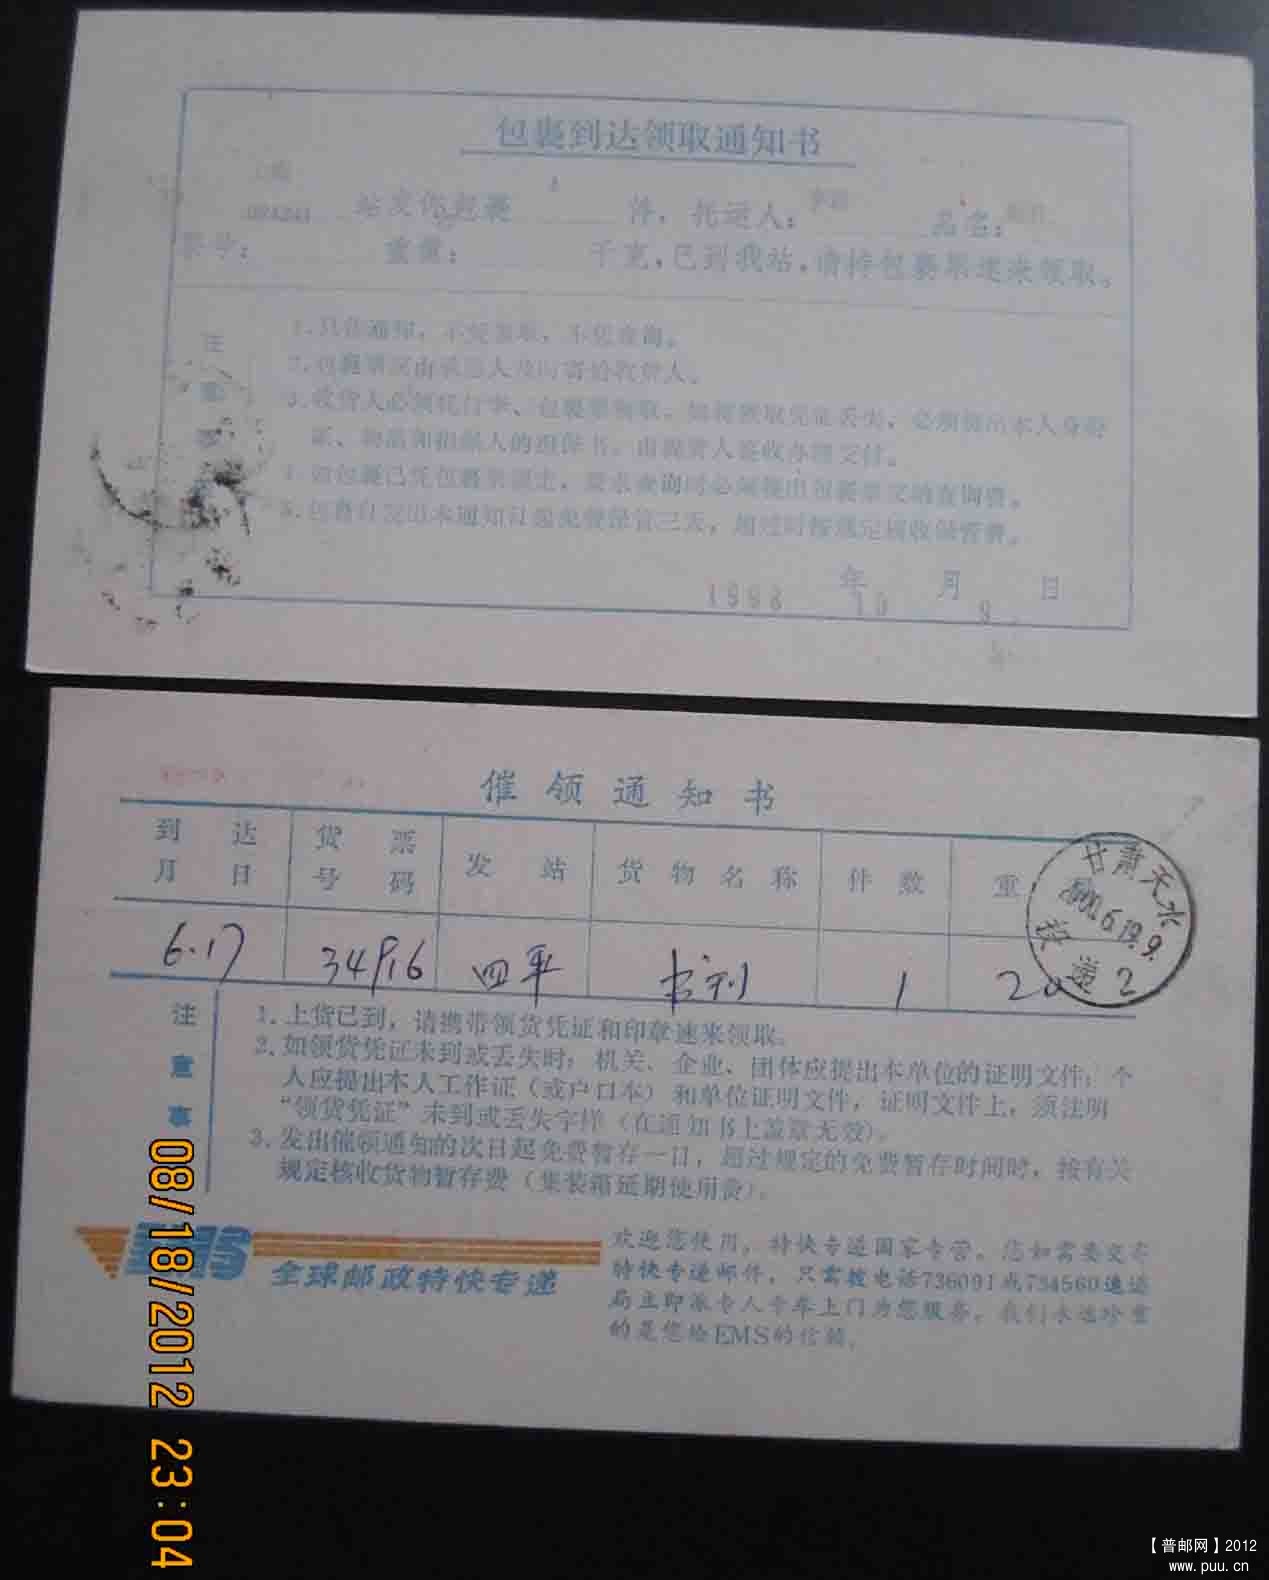 包裹到达领取通知书
站发你包裹 件，托运人： 品名：
票号： 重量： 千克，已到我站，请持包裹票速来领取。
注
意
事
1.只作通知，不凭领取，不凭查询。
2.包裹票应由托运人及时寄给收货人。
3.收货人必须凭行李、包裹票领取。如将领取凭证丢失，必须提出本人身份
证、物品和担保人的担保书，由提货人签收办理交付。
4.如包裹已凭包裹票领走，要求查询时必须提出包裹票交纳查询费。
5.包裹自发出本通知日起免费保管三天，超过时按规定核收保管费。
年 月 日
1998 10 9
催领通知书
到达 货票 发站 货物名称 件数 重
月日 号码
6.17 34916 四平 书刊 1
甘肃天水
2000.6.19.9.
投递2
注
意
事
1.上货已到，请携带领货凭证和印章速来领取。
2.如领货凭证未到或丢失时，机关、企业、团体应提出本单位的证明文件；个
人应提出本人工作证（或户口本）和单位证明文件，证明文件上，须注明
“领货凭证”未到或丢失字样（在通知书上盖章无效）。
3.发出催领通知的次日起免费暂存一日，超过规定的免费暂存时间时，按有关
规定核收货物暂存费（集装箱延期使用费）。
EMS
全球邮政特快专递
欢迎您使用，特快专递国家专营。您如需要交寄
特快专递邮件，只需拨电话736091或734560速递
局立即派专人专车上门为您服务。我们永远珍重
的是您给EMS的信赖。
08/18/2012 23:04
【普邮网】2012
www.puu.cn